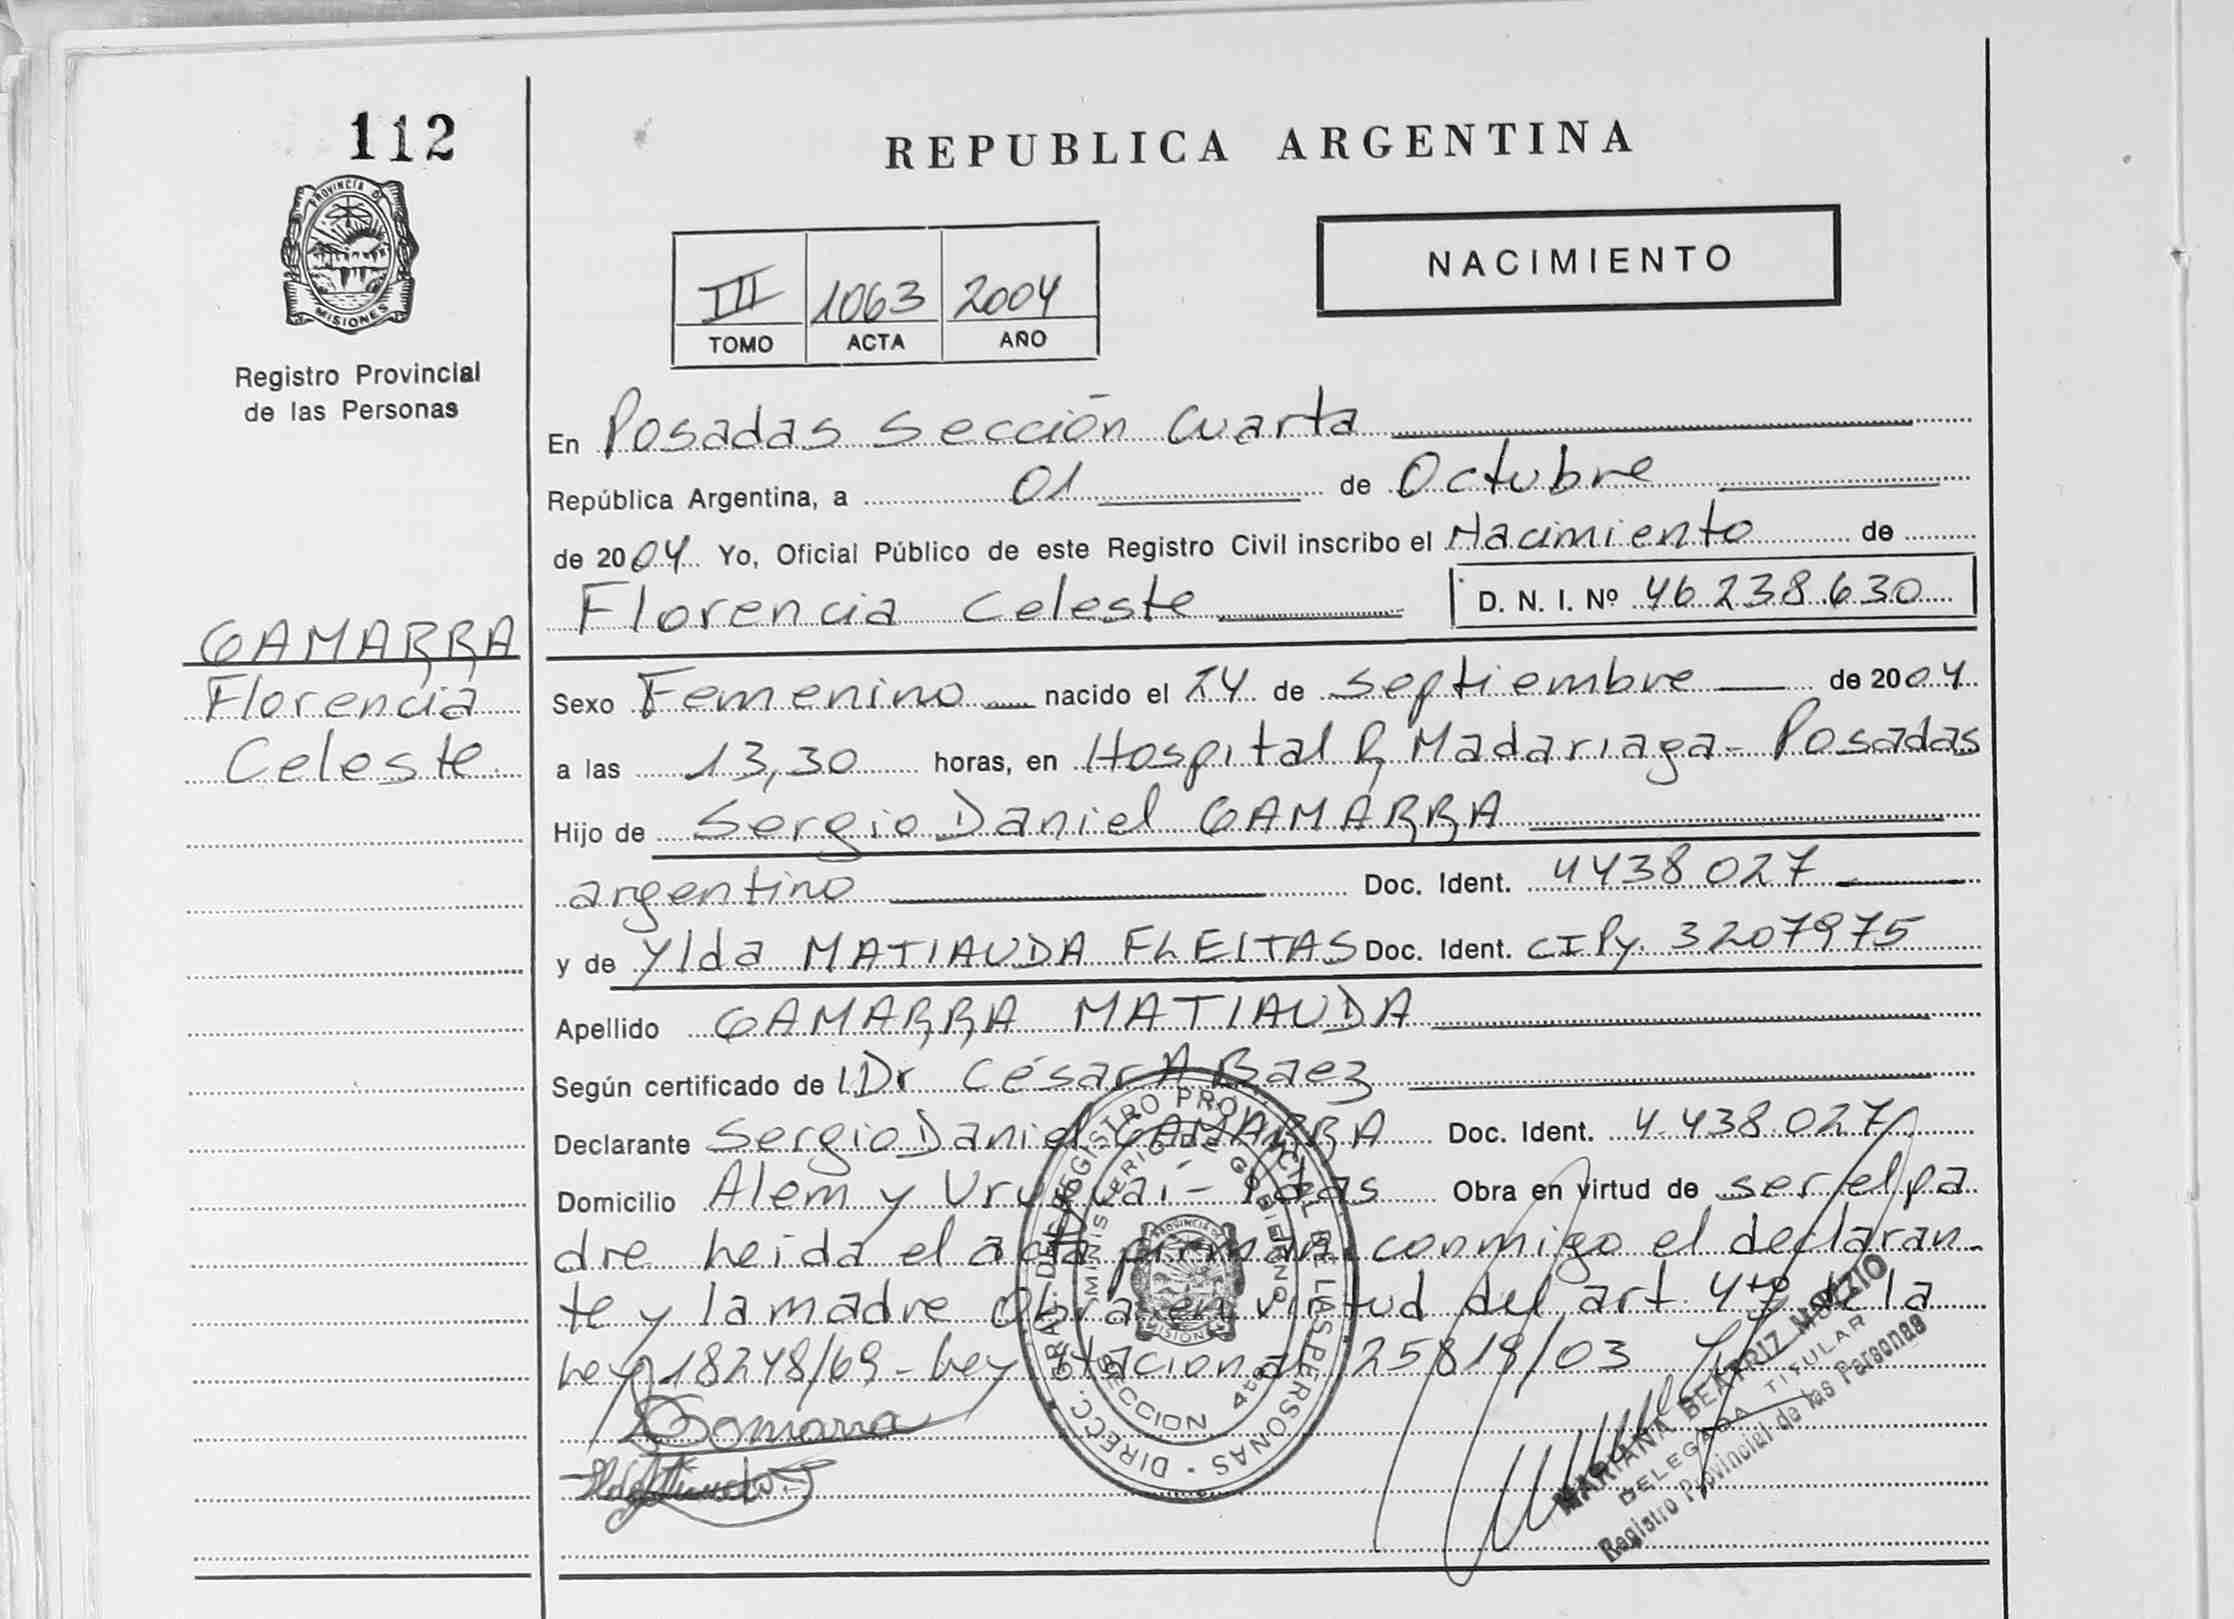 112
PROVINCIA DE
MISIONES
Registro Provincial
de las Personas
GAMARRA
Florencia
Celeste
REPUBLICA ARGENTINA
NACIMIENTO
III 1063 2004
TOMO ACTA AÑO
En Posadas Sección Cuarta
República Argentina, a 01 de Octubre
de 2004 Yo, Oficial Público de este Registro Civil inscribo el Nacimiento de
Florencia Celeste D. N. I. Nº 46.238.630
Sexo Femenino nacido el 24 de septiembre de 2004
a las 13,30 horas, en Hospital R, Madariaga - Posadas
Hijo de Sergio Daniel GAMARRA
argentino Doc. Ident. 4438027
y de Ylda MATIAUDA FLEITAS Doc. Ident. CI Py. 3207975
Apellido GAMARRA MATIAUDA
Según certificado de Dr César A Baez
Declarante Sergio Daniel GAMARRA Doc. Ident. 4.438.027
Domicilio Alem y Uruguai - Pdas Obra en virtud de ser el pa
dre Leida el acta firman conmigo el declaran-
te y la madre Obra en virtud del art 4to de la
Ley 18248/69 - Ley Nacional 25819/03
DIRECC. GRAL. DEL REGISTRO PROVINCIAL DE LAS PERSONAS
MINISTERIO DE GOBIERNO
SECCION 4ta
PROVINCIA DE
MISIONES
Gamarra
MARIANA BEATRIZ
DELEGADA TITULAR
Registro Provincial de las Personas